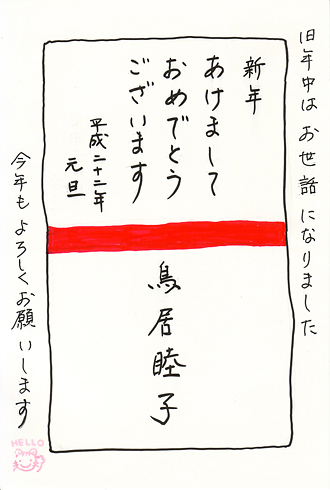 旧年中は お世話になりました
新年
あけまして
おめでとう
ございます
平成二十二年
元旦
鳥居睦子
今年もよろしくお願いします
HELLO